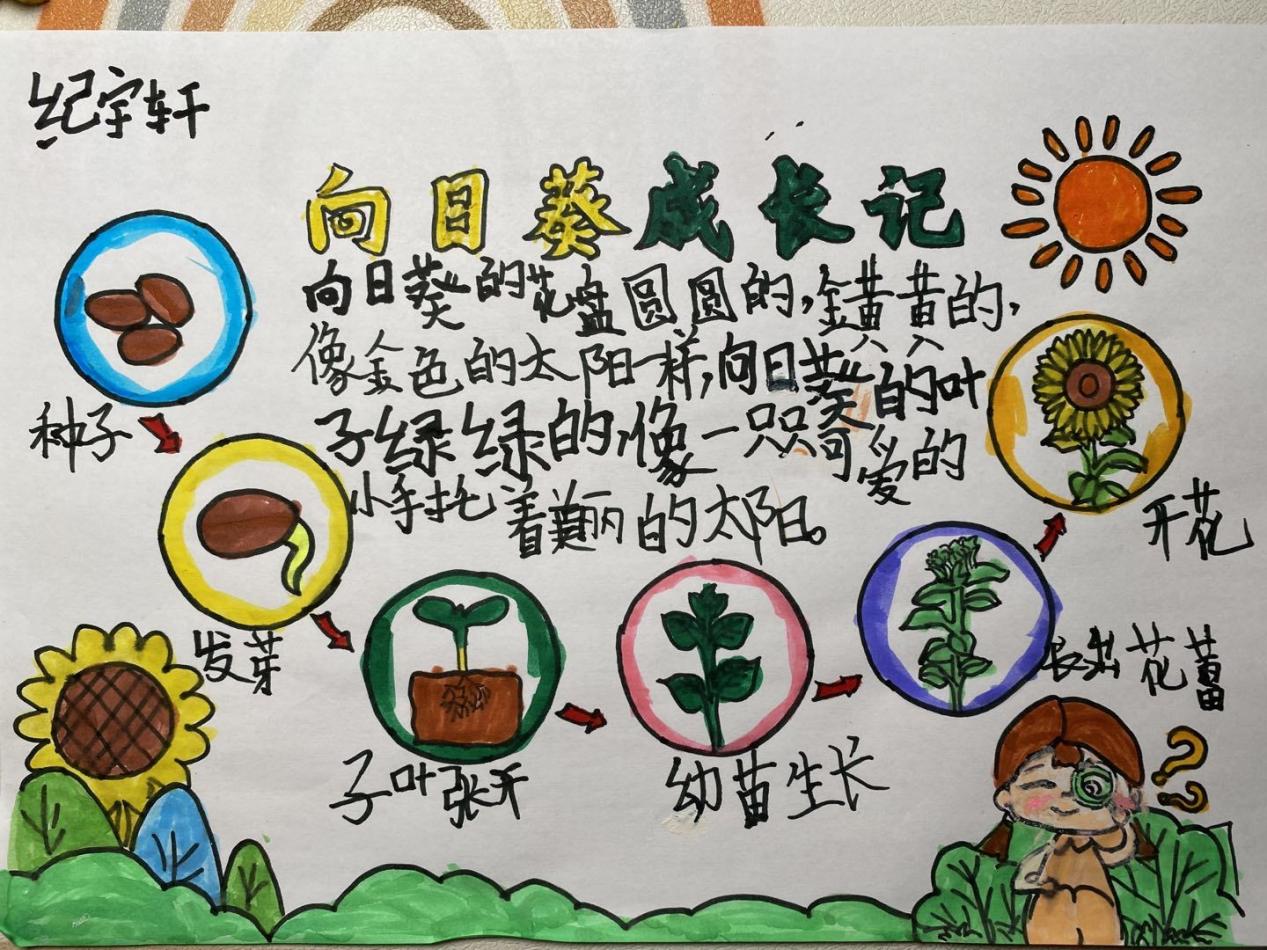 纪宇轩
向日葵成长记
向日葵的花盘圆圆的,金黄黄的,
像金色的太阳一样,向日葵的叶
子绿绿的,像一只只可爱的
小手托着美丽的太阳。
种子
发芽
子叶张开
幼苗生长
长出花蕾
开花
??